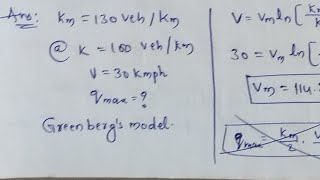 Ans: Km = 130 veh/Km
@ K = 100 veh/km
V = 30 kmph
qmax = ?
Greenberg's model.
V = Vm ln [ Km
30 = Vm ln [
Vm = 114.
qmax = Km/2 .